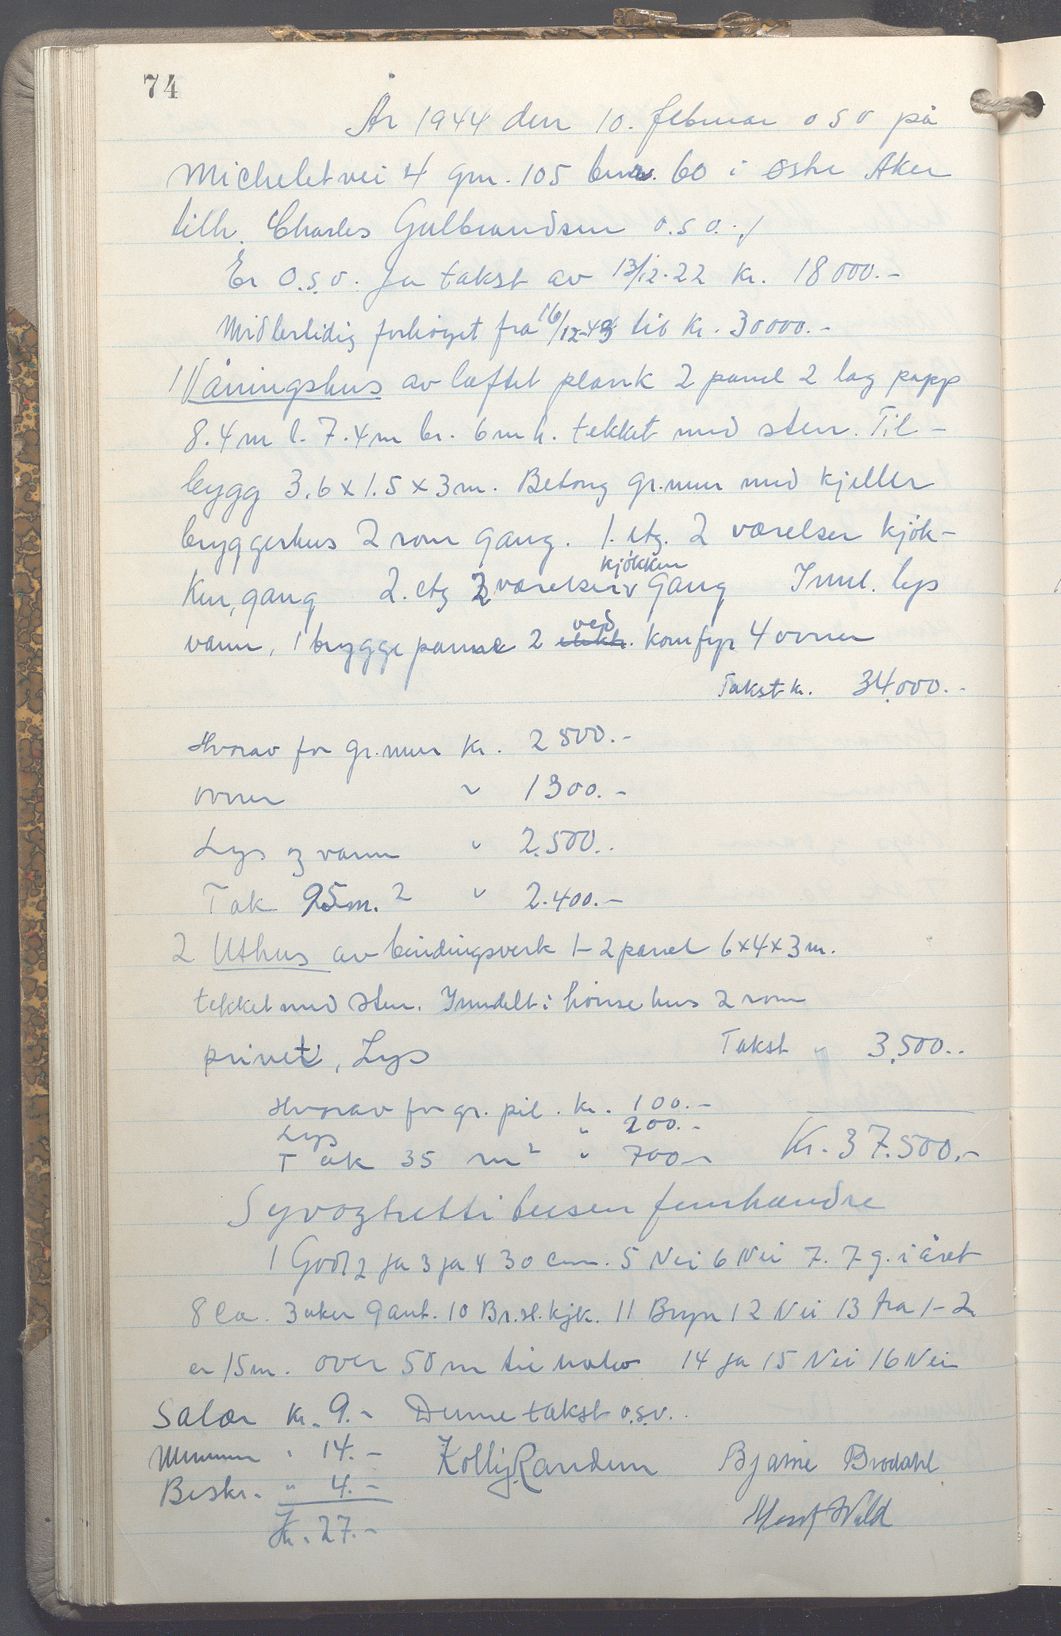 74
År 1944 den 10. februar o s v på
Micheletvei 4 gnr. 105 bnr. 60 i Østre Aker
tilh. Charles Gulbrandsen o.s.v. ./
Er o.s.v. Ja takst av 13/12-22 Kr. 18000.-
Midlertidig forhøyet fra 16/12-43 til Kr. 30000.-
1 Våningshus av laftet plank 2 panel 2 lag papp
8.4m l. 7.4m br. 6m h. tekket med sten. Til-
bygg 3.6 x 1.5 x 3m. Betong gr.mur med kjeller
bryggerhus 2 rom gang. 1. etg. 2 værelser kjøk-
ken, gang 2. etg 2 værelser kjøkken gang Innl. lys
vann, 1 bryggepanne 2 ved komfyr 4 ovner
Takst kr. 34.000.-
Hvorav for gr.mur Kr. 2500.-
ovner " 1300.-
Lys og vann " 2.500.-
Tak 95m.2 " 2.400.-
2 Uthus av bindingsverk 1-2 panel 6x4x3m.
tekket med sten. Inndelt i hønsehus 2 rom
privet, Lys Takst " 3.500.-
Hvorav for gr. pil. kr. 100.-
Lys " 200.-
Tak 35 m2 " 700.- Kr. 37.500.-
Syvogtretti tusen femhundre
1 God 2 Ja 3 Ja 4 30 cm. 5 Nei 6 Nei 7. 7 g. i året
8 Ca. 3 aker 9 ant. 10 Br.sl. kjk. 11 Bryn 12 Nei 13 fra 1-2
er 15m. over 50m til nabo 14 Ja 15 Nei 16 Nei
Salær Kr. 9.- Denne takst o.s.v.
" 14.- Kolbj. Randem Bjarne Brodahl
Beskr. " 4.-
Kr. 27.-